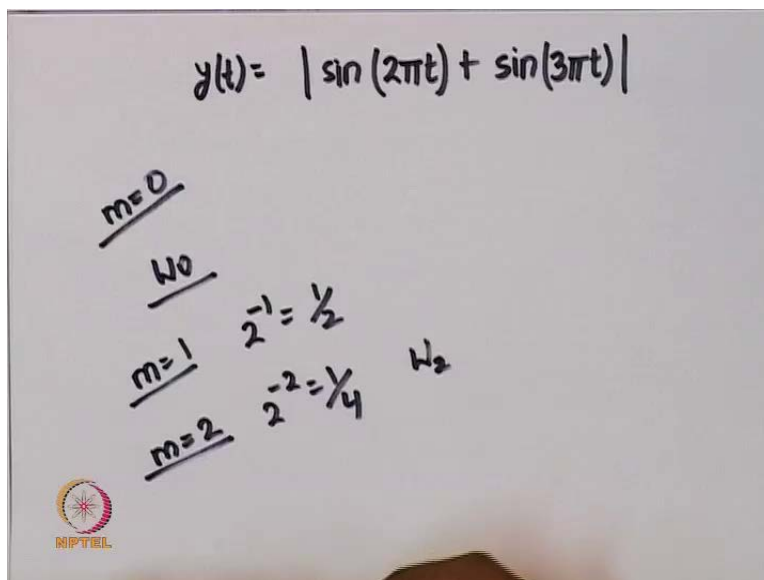 y(t) = | sin (2πt) + sin(3πt) |
m=0
W0
m=1 2^-1 = 1/2
m=2 2^-2 = 1/4 W2
NPTEL